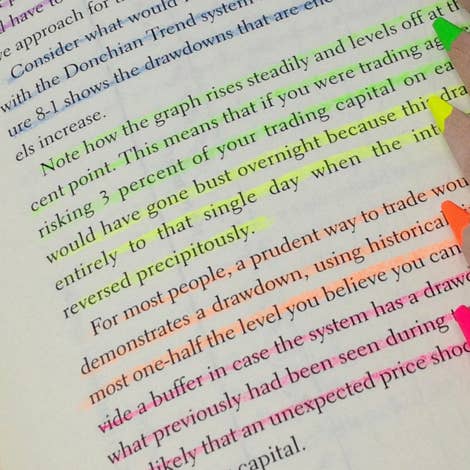 have to
ve approach for t
Consider what would
with the Donchian Trend system
ure 8-1 shows the drawdowns that are en
els increase.
Note how the graph rises steadily and levels off at th
cent point. This means that if you were trading ag
risking 3 percent of your trading capital on ea
would have gone bust overnight because this dra
entirely to that single day when the int
reversed precipitously.
For most people, a prudent way to trade wou
demonstrates a drawdown, using historical
most one-half the level you believe you can
vide a buffer in case the system has a drawd
what previously had been seen during
likely that an unexpected price shoc
capital.